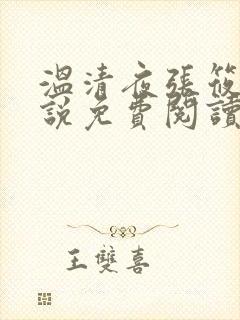 溫清夜張筱
說免費閱讀
王雙喜